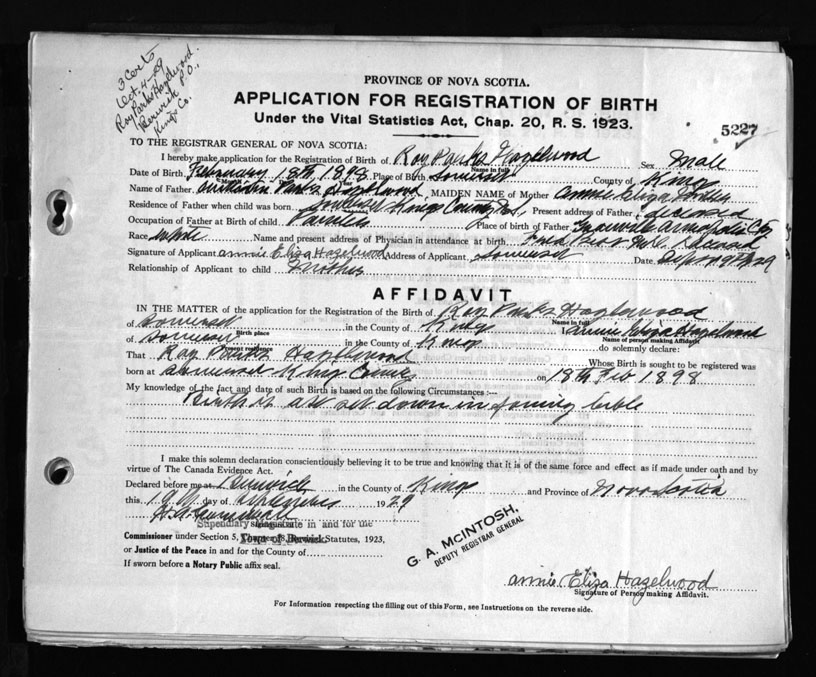 3 Certs
Oct. 4-29
Roy Parks Hazelwood.
Berwick P.O.,
Kings Co.
PROVINCE OF NOVA SCOTIA.
APPLICATION FOR REGISTRATION OF BIRTH
Under the Vital Statistics Act, Chap. 20, R. S. 1923.
5227
TO THE REGISTRAR GENERAL OF NOVA SCOTIA:
I hereby make application for the Registration of Birth of Roy Parks Hazelwood Sex Male
Name in full
Date of Birth February 18th, 1898 Place of Birth Somerset County of Kings
Name of Father Parks Hazelwood MAIDEN NAME of Mother Annie Eliza
Residence of Father when child was born Somerset Kings County N.S., Present address of Father deceased
Occupation of Father at Birth of child Farmer Place of Birth of Father Granville Annapolis Cty
Race White Name and present address of Physician in attendance at birth
Signature of Applicant Annie Eliza Hazelwood Address of Applicant Somerset Date Sept. 19th/29
Relationship of Applicant to child Mother
AFFIDAVIT
IN THE MATTER of the application for the Registration of the Birth of Roy Parks Hazelwood
Name in full
of Somerset in the County of Kings I Annie Eliza Hazelwood
Birth place
Name of person making Affidavit
of Somerset in the County of Kings do solemnly declare:
Present residence
That Roy Parks Hazelwood Whose Birth is sought to be registered was
born at Somerset Kings County on 18th Feb 1898
My knowledge of the fact and date of such Birth is based on the following Circumstances :—
Birth is as set down in family bible
I make this solemn declaration conscientiously believing it to be true and knowing that it is of the same force and effect as if made under oath and by
virtue of The Canada Evidence Act.
Declared before me at Berwick in the County of Kings and Province of Nova Scotia
this 19th day of September 1929
Stipendiary Magistrate in and for the
Town of Berwick
Commissioner under Section 5, Chapter Revised Statutes, 1923,
or Justice of the Peace in and for the County of
If sworn before a Notary Public affix seal.
G. A. McINTOSH,
DEPUTY REGISTRAR GENERAL
Annie Eliza Hazelwood
Signature of Person making Affidavit.
For Information respecting the filling out of this Form, see Instructions on the reverse side.